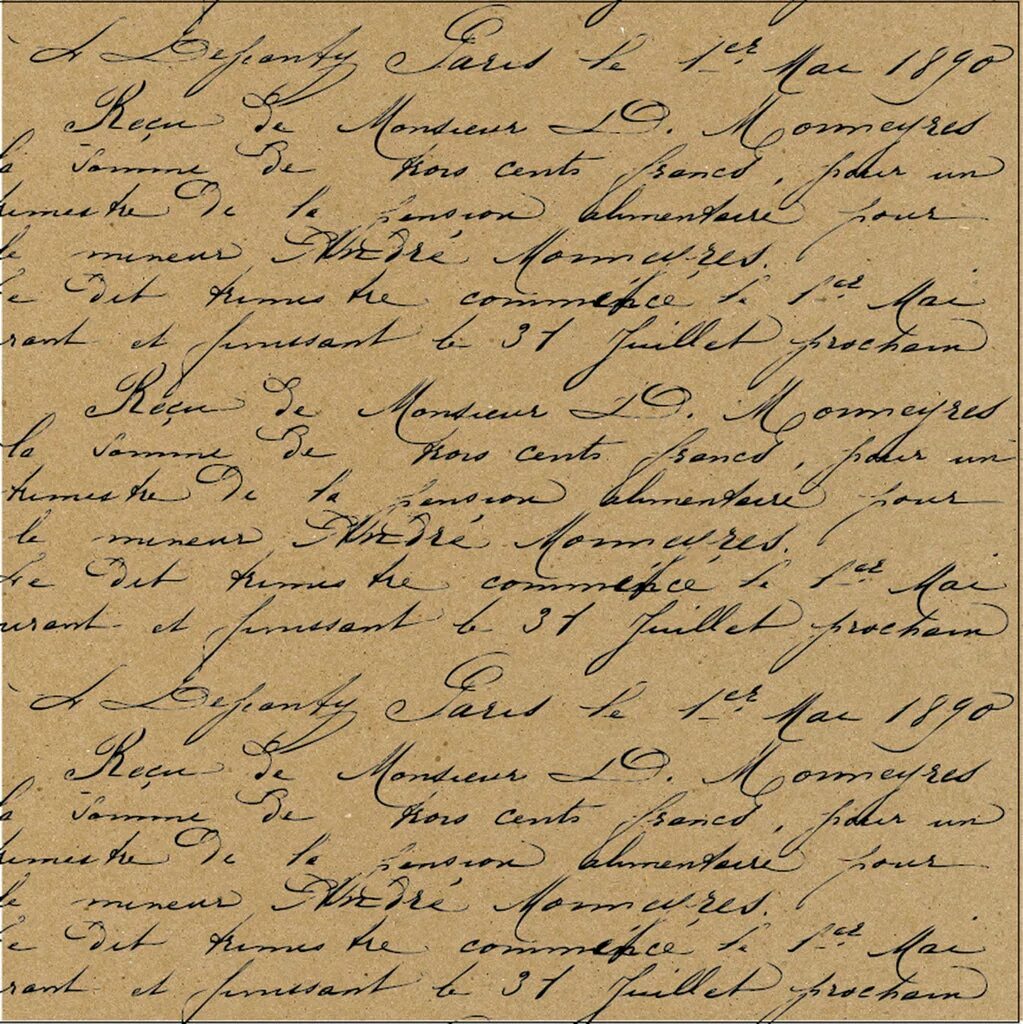 Paris le 1er Mai 1890
Reçu de Monsieur D. Monneyres
la somme de trois cents francs, pour un
trimestre de la pension alimentaire pour
le mineur André Monneyres.
Le dit trimestre commence le 1er Mai
rant et finissant le 31 Juillet prochain
Reçu de Monsieur D. Monneyres
la somme de trois cents francs, pour un
trimestre de la pension alimentaire pour
le mineur André Monneyres.
Le dit trimestre commence le 1er Mai
urant et finissant le 31 Juillet prochain
Paris le 1er Mai 1890
Reçu de Monsieur D. Monneyres
la somme de trois cents francs, pour un
trimestre de la pension alimentaire pour
le mineur André Monneyres.
Le dit trimestre commence le 1er Mai
rant et finissant le 31 Juillet prochain